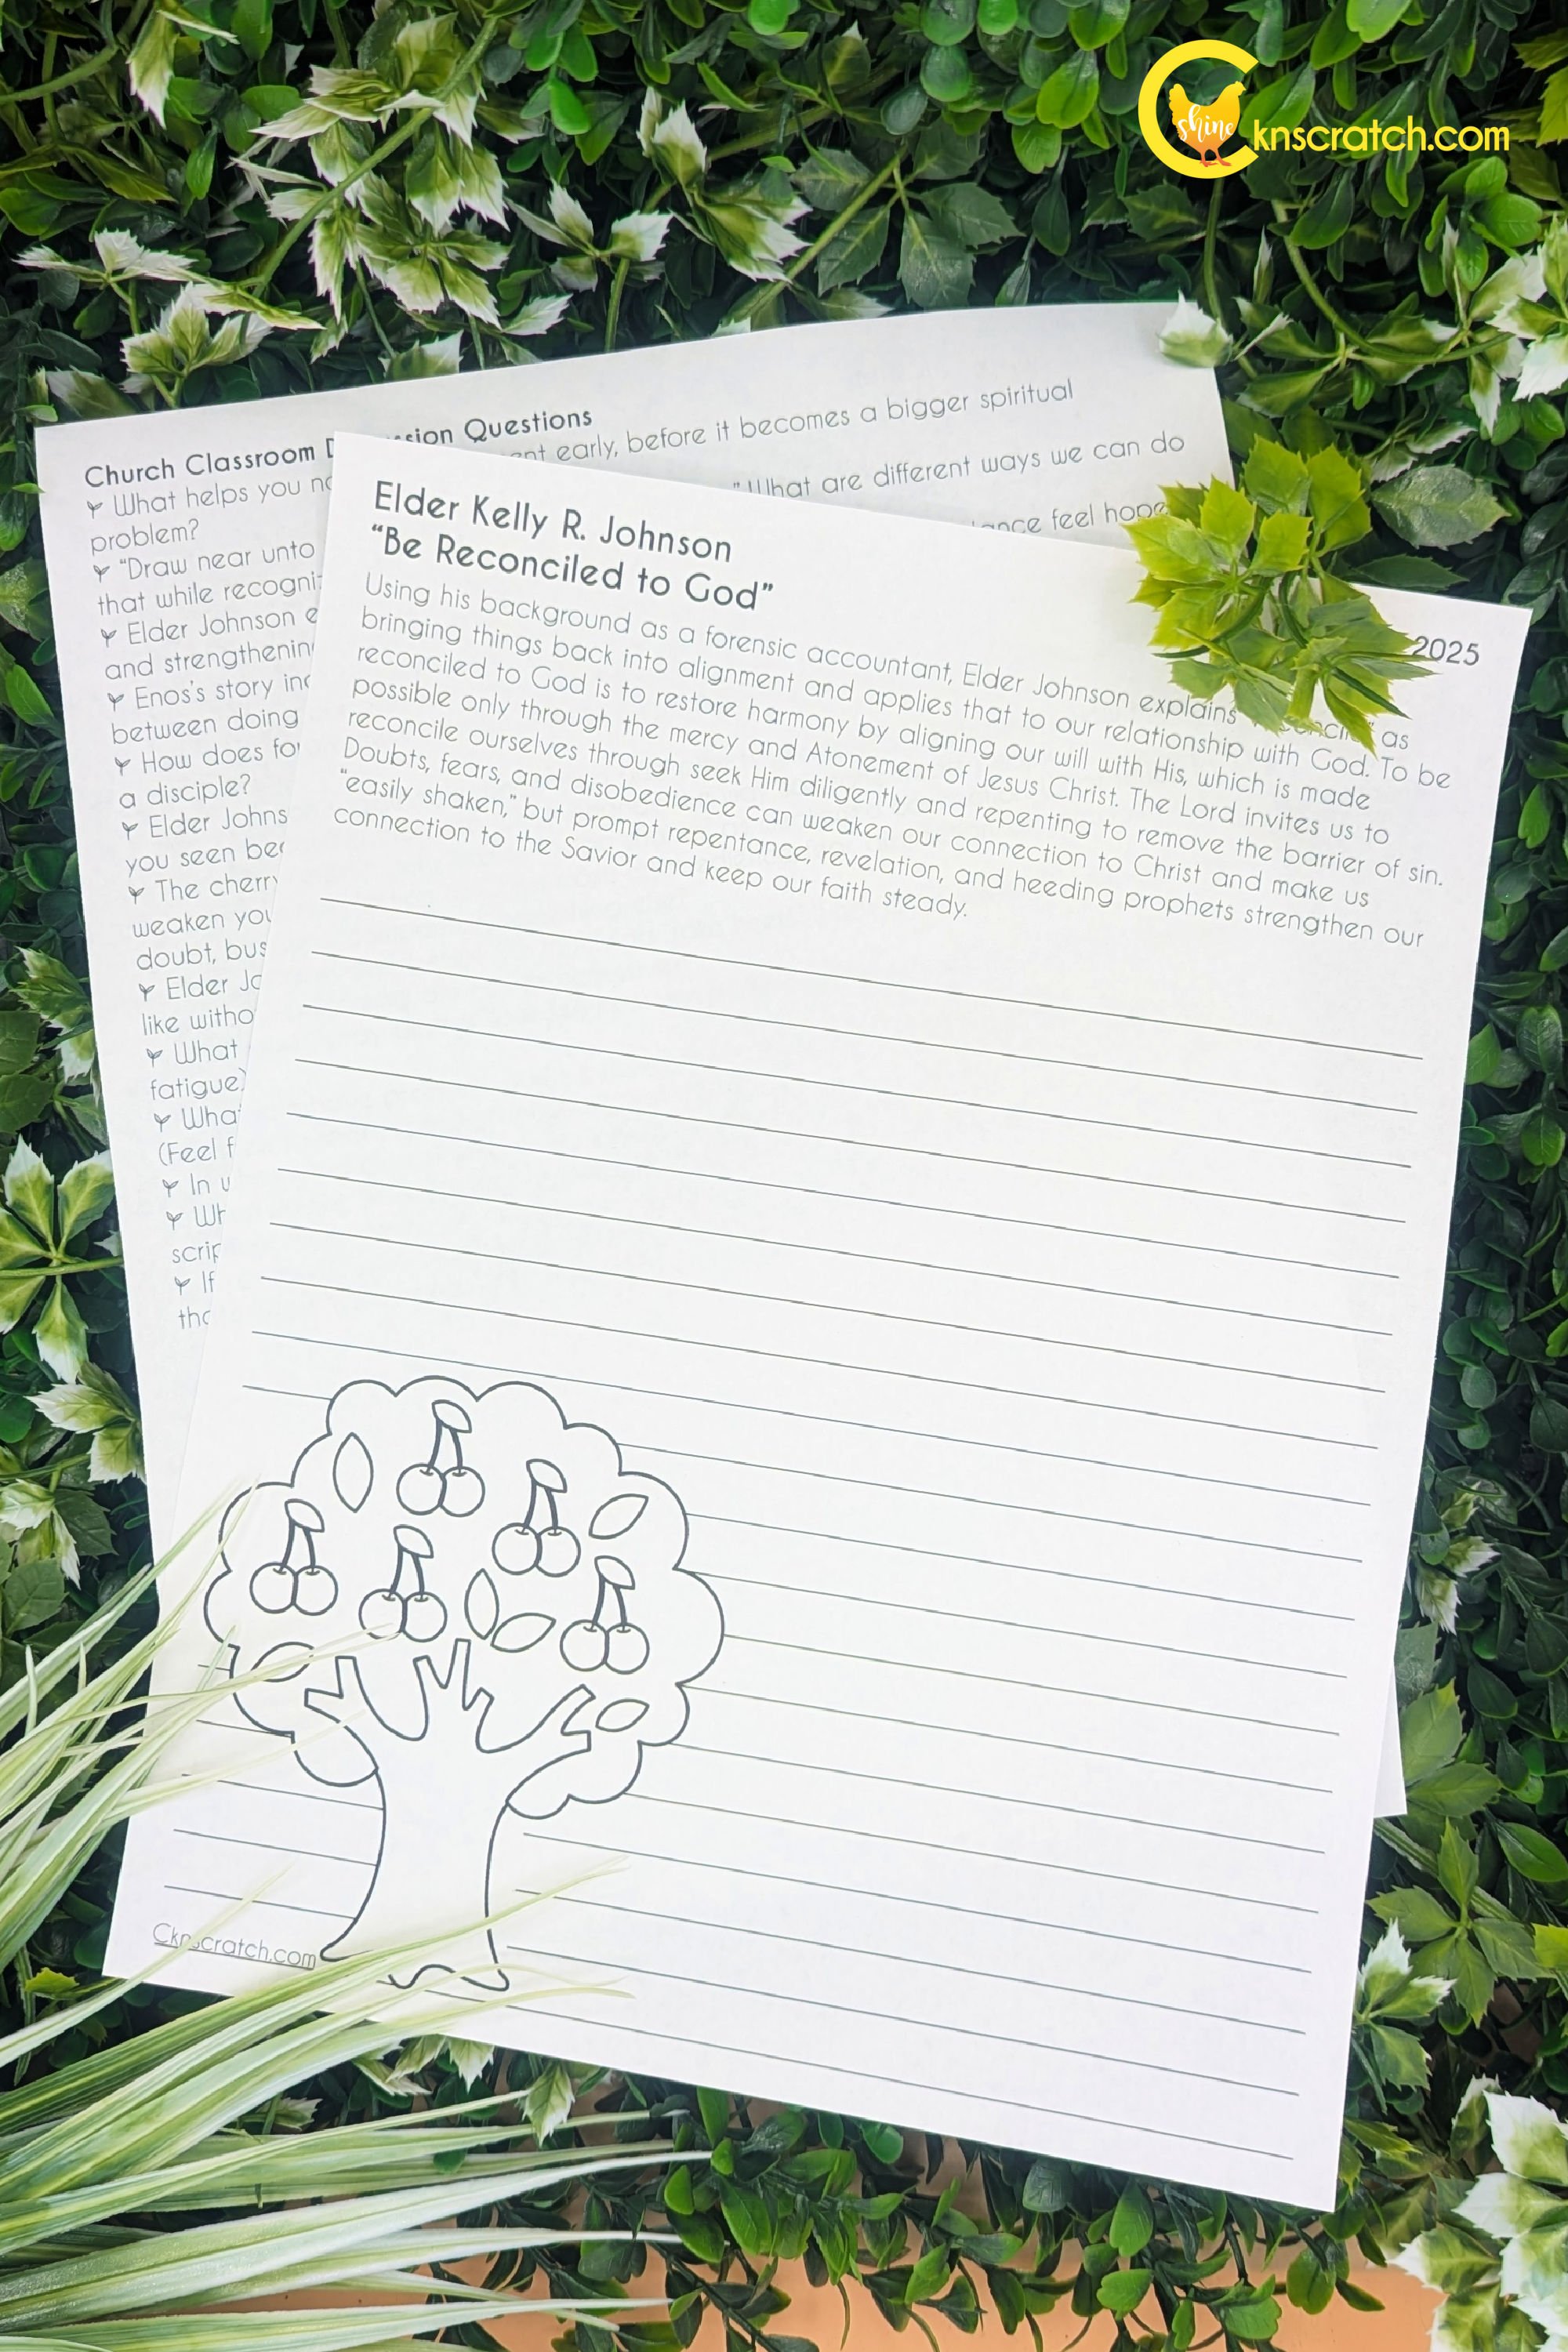 shine
knscratch.com
Church Classroom
sion Questions
What helps you
early, before it becomes a bigger spiritual
problem?
What are different ways we can do
"Draw near unto
feel hope
that while
Elder Johnson
and
Enos's story
between doing
How does
a disciple?
Elder
you seen
The
weaken
doubt,
Elder
like
What
fatigue)
(Feel
In
If
Elder Kelly R. Johnson
"Be Reconciled to God"
2025
Using his background as a forensic accountant, Elder Johnson explains as
bringing things back into alignment and applies that to our relationship with God. To be
reconciled to God is to restore harmony by aligning our will with His, which is made
possible only through the mercy and Atonement of Jesus Christ. The Lord invites us to
reconcile ourselves through seek Him diligently and repenting to remove the barrier of sin.
Doubts, fears, and disobedience can weaken our connection to Christ and make us
"easily shaken," but prompt repentance, revelation, and heeding prophets strengthen our
connection to the Savior and keep our faith steady.
Cknscratch.com